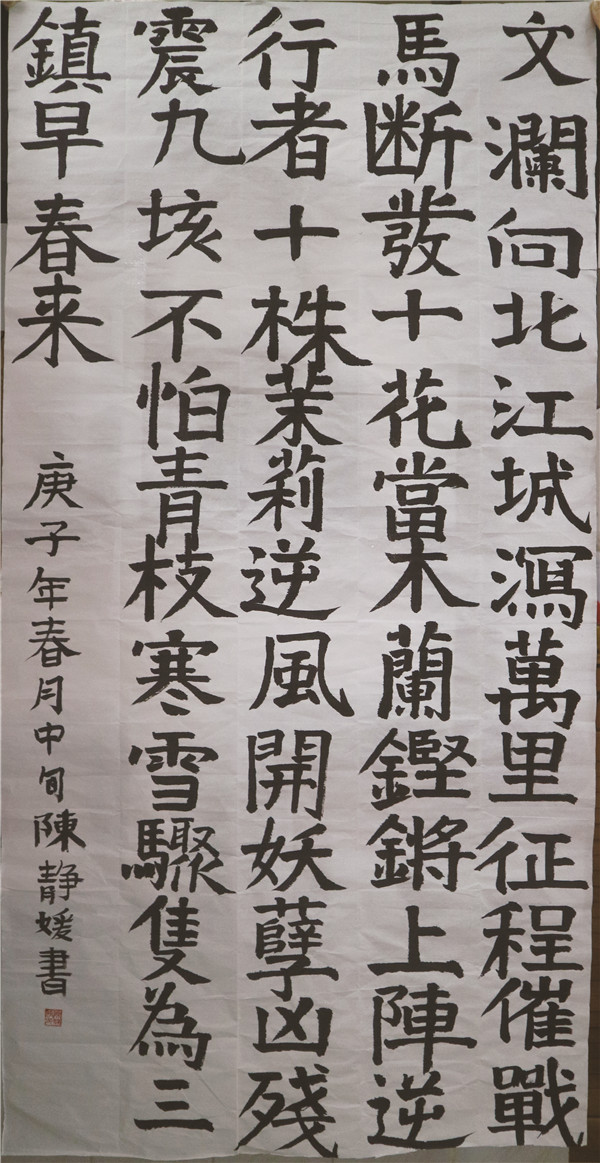 文瀾向北江城瀉萬里征程催戰
馬断發十花當木蘭鏗鏘上陣逆
行者十株茉莉逆風開妖孽凶殘
震九垓不怕青枝寒雪驟隻為三
鎮早春来
庚子年春月中旬陳静媛書